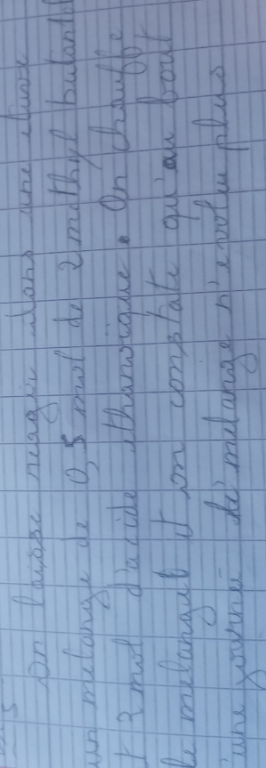 On laisse reagir dans une etuve
un melange de 0,5 mol de 2 methyl butan
et 2 mol d'acide ethanoique. On chauffe
le melange et on constate qu'au bout
d'une journée le melange n'evolue plus